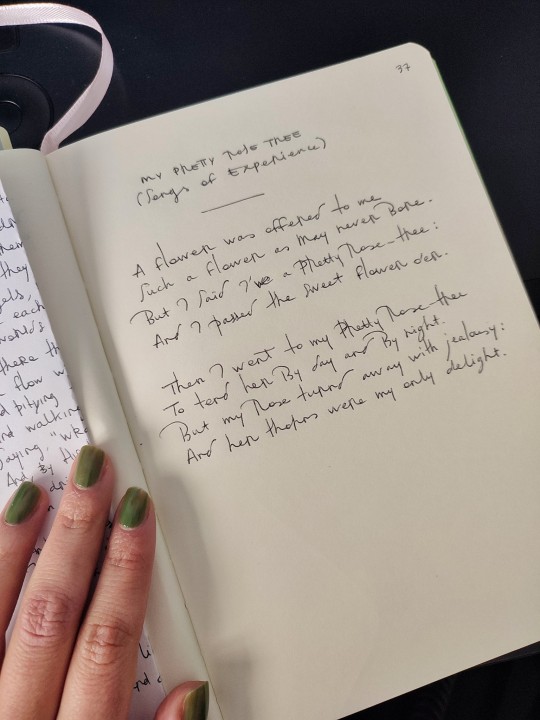 37
MY PRETTY ROSE TREE
(Songs of Experience)
A flower was offered to me
Such a flower as May never Bore.
But I said I've a Pretty Rose-tree:
And I passed the sweet flower o'er.
Then I went to my Pretty Rose-tree
To tend her By day and By night.
But my Rose turnd away with jealousy:
And her thorns were my only delight.
they
each
world's
there th
flow w
d pitying
and walkin
Saying, "w
And By Hi